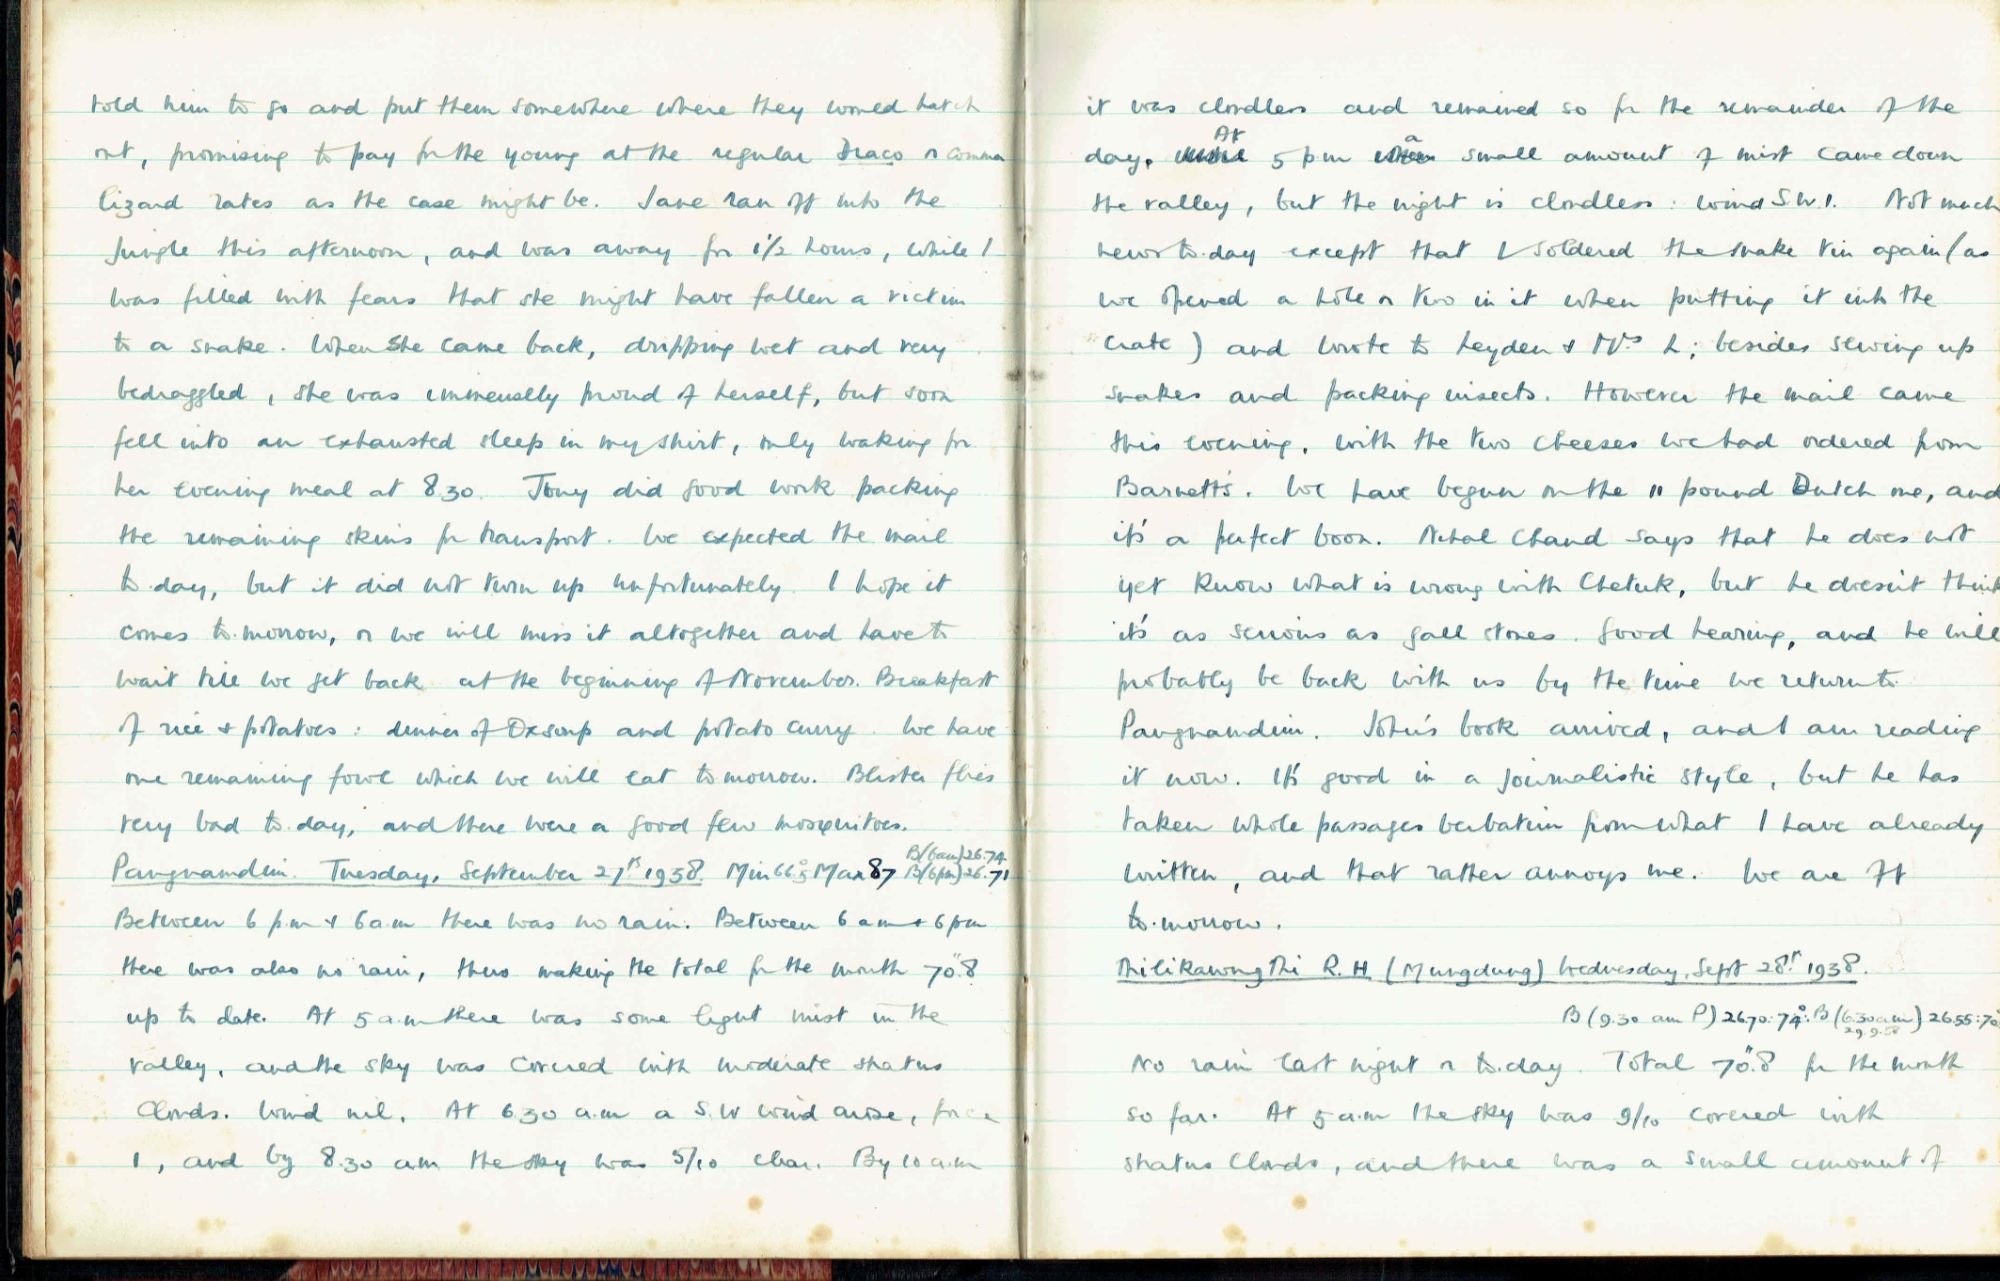 told him to go and put them somewhere where they would hatch
out, promising to pay for the young at the regular Draco or common
lizard rates as the case might be. Jane ran off into the
jungle this afternoon, and was away for 1½ hours, while I
was filled with fears that she might have fallen a victim
to a snake. When she came back, dripping wet and very
bedraggled, she was immensely proud of herself, but soon
fell into an exhausted sleep in my shirt, only waking for
her evening meal at 8.30. Tony did good work packing
the remaining skins for transport. We expected the mail
to-day, but it did not turn up unfortunately. I hope it
comes to-morrow, or we will miss it altogether and have to
wait till we get back at the beginning of November. Breakfast
of rice & potatoes: dinner of Oxsoup and potato curry. We have
one remaining fowl which we will eat tomorrow. Blister flies
very bad to-day, and there were a good few mosquitoes.
Pangnamdim. Tuesday, September 27th 1938. Min 66°.5 Max 87 B(6am) 26.74. B(6pm) 26.71
Between 6 pm & 6 a.m there was no rain. Between 6 am & 6 pm
there was also no rain, thus making the total for the month 70".8
up to date. At 5 a.m there was some light mist in the
valley, and the sky was covered with moderate stratus
clouds. Wind nil. At 6.30 a.m a S.W wind arose, force
1, and by 8.30 am the sky was 5/10 clear. By 10 a.m
it was cloudless and remained so for the remainder of the
day. At 5 pm a small amount of mist came down
the valley, but the night is cloudless: wind S.W.1. Not much
news to-day except that I soldered the snake tin again (as
we opened a hole or two in it when putting it into the
crate) and wrote to Leyden & Mrs L; besides sewing up
snakes and packing insects. However the mail came
this evening, with the two cheeses we had ordered from
Barnett's. We have begun on the 11 pound Dutch one, and
it's a perfect boon. Nihal Chand says that he does not
yet know what is wrong with Chetuk, but he doesn't think
it's as serious as gall stones. Good hearing, and he will
probably be back with us by the time we return to
Pangnamdim. John's book arrived, and I am reading
it now. It's good in a journalistic style, but he has
taken whole passages verbatim from what I have already
written, and that rather annoys me. We are off
to-morrow.
Thilikawng Thi R.H (Mungdung) Wednesday, Sept 28th 1938.
B (9.30 am P) 26.70: 74°. B (6.30 a.m 29.9.38) 26.55: 70°
No rain last night or to-day. Total 70".8 for the month
so far. At 5 a.m the sky was 9/10 covered with
stratus clouds, and there was a small amount of